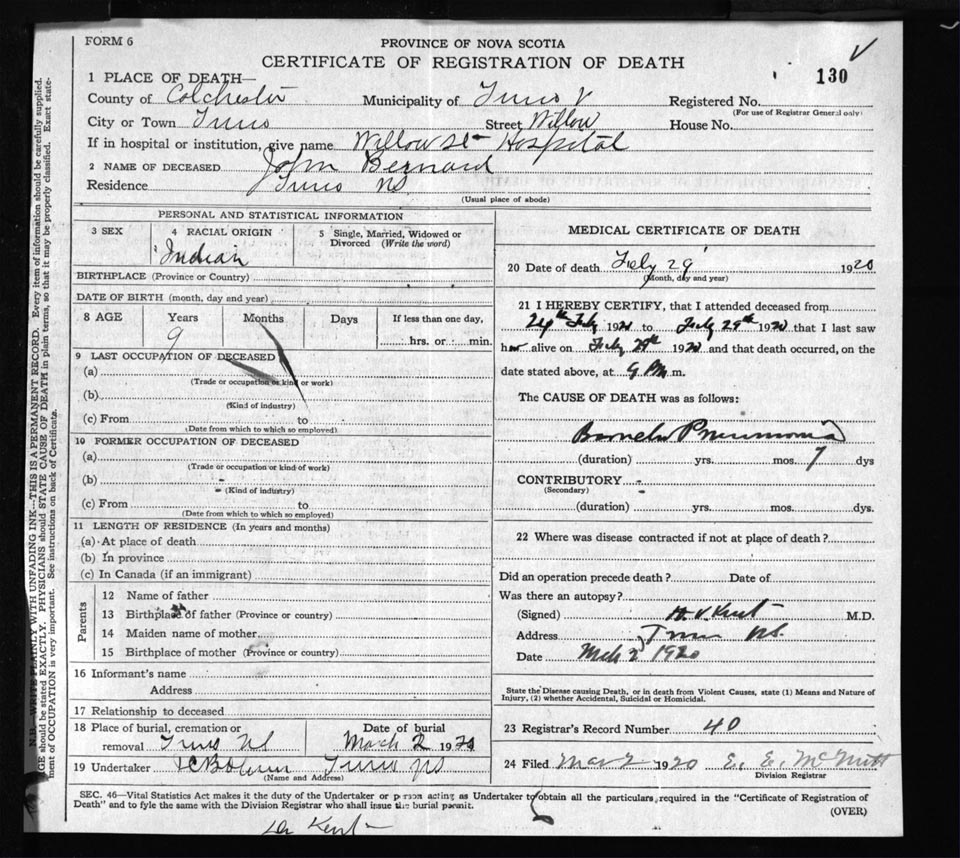 FORM 6
PROVINCE OF NOVA SCOTIA
CERTIFICATE OF REGISTRATION OF DEATH
130
1 PLACE OF DEATH—
County of Colchester Municipality of Truro Registered No.
(For use of Registrar General only)
City or Town Truro Street Willow House No.
If in hospital or institution, give name Willow St Hospital
2 NAME OF DECEASED John Bernard
Residence Truro NS
(Usual place of abode)
PERSONAL AND STATISTICAL INFORMATION
3 SEX 4 RACIAL ORIGIN 5 Single, Married, Widowed or Divorced (Write the word)
Indian
BIRTHPLACE (Province or Country)
DATE OF BIRTH (month, day and year)
8 AGE Years Months Days If less than one day,
9 hrs. or min.
9 LAST OCCUPATION OF DECEASED
(a)
(Trade or occupation or kind or work)
(b)
(Kind of industry)
(c) From to
(Date from which to which so employed)
10 FORMER OCCUPATION OF DECEASED
(a)
(Trade or occupation or kind of work)
(b)
(Kind of industry)
(c) From to
(Date from which to which so employed)
11 LENGTH OF RESIDENCE (In years and months)
(a) At place of death
(b) In province
(c) In Canada (if an immigrant)
Parents
12 Name of father
13 Birthplace of father (Province or country)
14 Maiden name of mother
15 Birthplace of mother (Province or country)
16 Informant's name
Address
17 Relationship to deceased
18 Place of burial, cremation or removal Truro NS
Date of burial March 2 1920
19 Undertaker Truro NS
(Name and Address)
MEDICAL CERTIFICATE OF DEATH
20 Date of death Feby 29 1920
(Month, day and year)
21 I HEREBY CERTIFY, that I attended deceased from
24th Feby 1920 to Feby 29th 1920 that I last saw
h alive on Feby 29th 1920 and that death occurred, on the
date stated above, at 9 PM m.
The CAUSE OF DEATH was as follows:
Pneumonia
(duration) yrs. mos. 7 dys
CONTRIBUTORY
(Secondary)
(duration) yrs. mos. dys.
22 Where was disease contracted if not at place of death?
Did an operation precede death? Date of
Was there an autopsy?
(Signed) H. V. Kent M.D.
Address Truro NS.
Date Mch 2 1920
State the Disease causing Death, or in death from Violent Causes, state (1) Means and Nature of
Injury, (2) whether Accidental, Suicidal or Homicidal.
23 Registrar's Record Number 40
24 Filed Mar 2 1920 E. E. McNutt
Division Registrar
SEC. 46—Vital Statistics Act makes it the duty of the Undertaker or person acting as Undertaker to obtain all the particulars required in the "Certificate of Registration of
Death" and to fyle the same with the Division Registrar who shall issue the burial permit.
(OVER)
Dr Kent
N.B.—WRITE PLAINLY WITH UNFADING INK—THIS IS A PERMANENT RECORD. Every item of information should be carefully supplied.
AGE should be stated EXACTLY. PHYSICIANS should STATE CAUSE OF DEATH in plain terms, so that it may be properly classified. Exact state-
ment of OCCUPATION is very important. See instructions on back of Certificate.